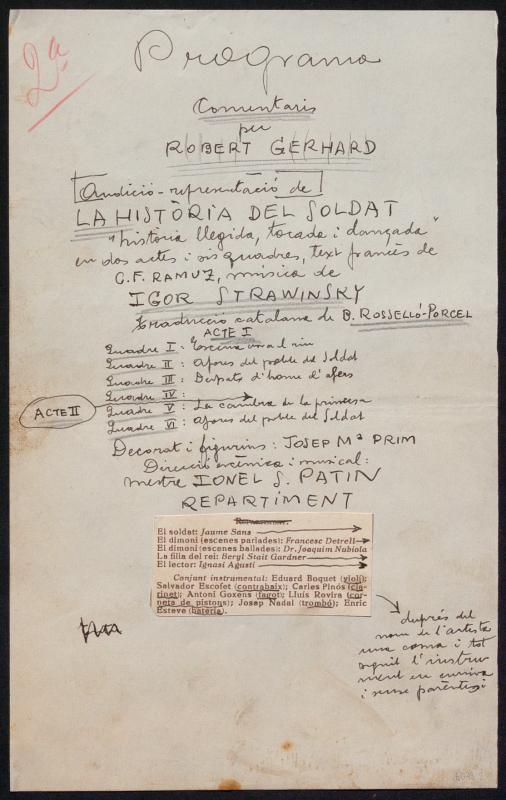 2ª
Programa
Comentaris
per
ROBERT GERHARD
Audició-representació de
LA HISTÒRIA DEL SOLDAT
"història llegida, tocada i dançada"
en dos actes i sis quadres, text francès de
C.F. RAMUZ, música de
IGOR STRAWINSKY
traducció catalana de B. ROSSELLÓ-PORCEL
ACTE I
Quadre I: Escena vora el riu
Quadre II: Afores del poble del Soldat
Quadre III: Despatx d'home d'afers
Quadre IV:
ACTE II
Quadre V: La cambra de la princesa
Quadre VI: afores del poble del Soldat
Decorat i figurins: JOSEP Mª PRIM
Direcció escènica i musical:
mestre IONEL S. PATIN
REPARTIMENT
Repartiment:
El soldat: Jaume Sans
El dimoni (escenes parlades): Francesc Detrell
El dimoni (escenes ballades): Dr. Joaquim Nubiola
La filla del rei: Beryl Stait Gardner
El lector: Ignasi Agustí
Conjunt instrumental: Eduard Boquet (violí);
Salvador Escofet (contrabaix); Carles Pinós (cla-
rinet); Antoni Goxens (fagot); Lluís Rovira (cor-
neta de pistons); Josep Nadal (trombó); Enric
Esteve (bateria).
després del
nom de l'artista
una coma i tot
seguit l'instru-
ment en cursiva
i sense parèntesi